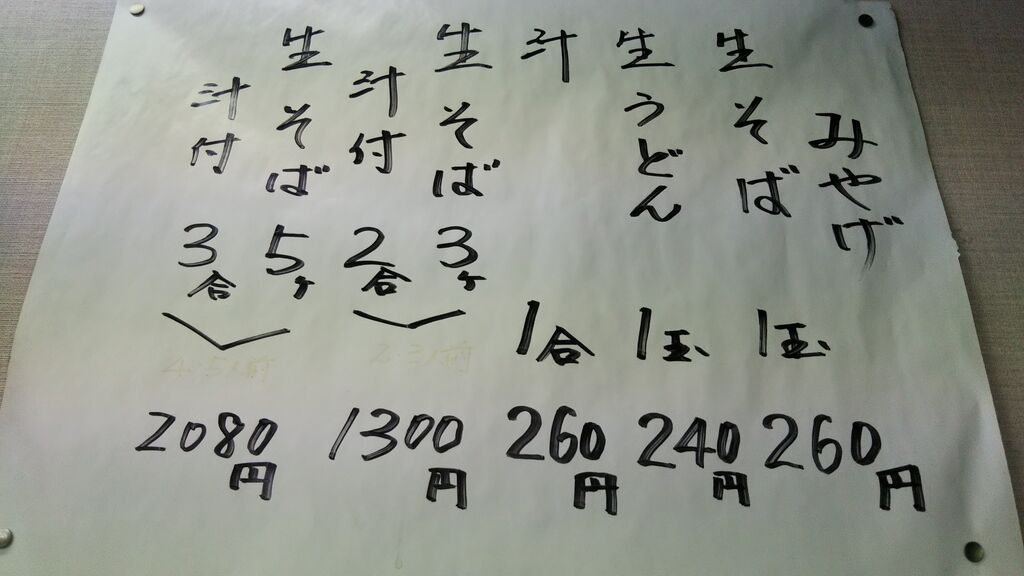 みやげ
生そば 1玉 260円
生うどん 1玉 240円
汁 1合 260円
生そば 3ヶ
汁付 2合
2.3人前
1300円
生そば 5ヶ
汁付 3合
4.5人前
2080円